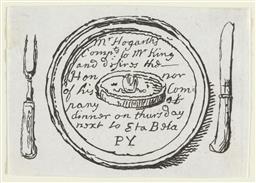 Mr Hogarth's
Compts to Mr King
and desires the
Hon nor
of his Com
pany at
dinner on thursday
next to Eta Beta
PY